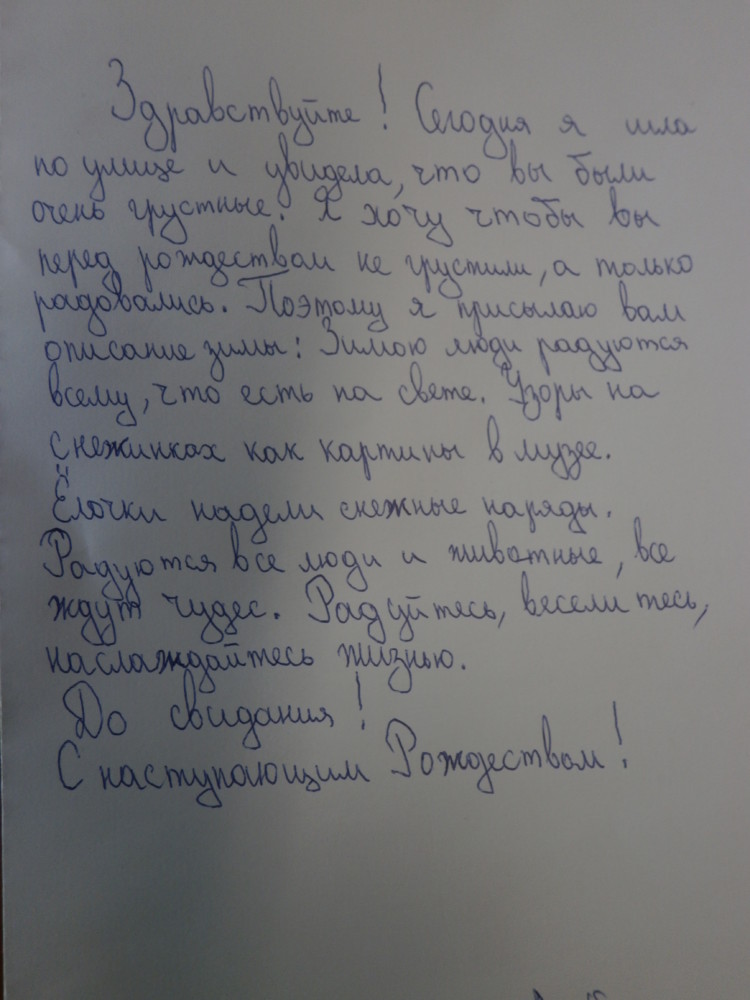 Здравствуйте! Сегодня я шла
по улице и увидела, что вы были
очень грустные. Я хочу чтобы вы
перед рождеством не грустили, а только
радовались. Поэтому я присылаю вам
описание зимы: Зимою люди радуются
всему, что есть на свете. Узоры на
снежинках как картины в музее.
Ёлочки надели снежные наряды.
Радуются все люди и животные, все
ждут чудес. Радуйтесь, веселитесь,
наслаждайтесь жизнью.
До свидания!
С наступающим Рождеством!